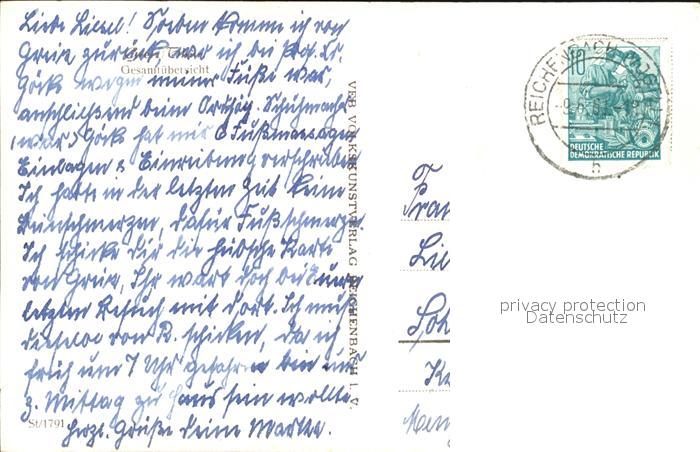 Liebe Liesel! Soeben komme ich von
Greiz zurück, wo ich bei
Göck wegen meiner Füße war,
Gesamtübersicht
anschließend beim Orthop. Schuhmacher
(war) Göck hat mir 6 Fußmassagen
Einlagen & Einreibung verschrieben
Ich hatte in der letzten Zeit keine
Beinschmerzen, dafür Fußschmerzen
Ich schicke Dir die hübsche Karte
von Greiz, Ihr wart doch bei
letzten Besuch mit dort. Ich muß
dieselbe von R. schicken, da ich
früh um 7 Uhr gefahren bin und
z. Mittag zu Haus sein wollte.
St/1791
Herzl. Grüße Deine Martha.
VEB VOLKSKUNSTVERLAG REICHENBACH I. V.
REICHENBACH (VOGTL)
10
DEUTSCHE
DEMOKRATISCHE REPUBLIK
b
Frau
Lie
privacy protection
Datenschutz